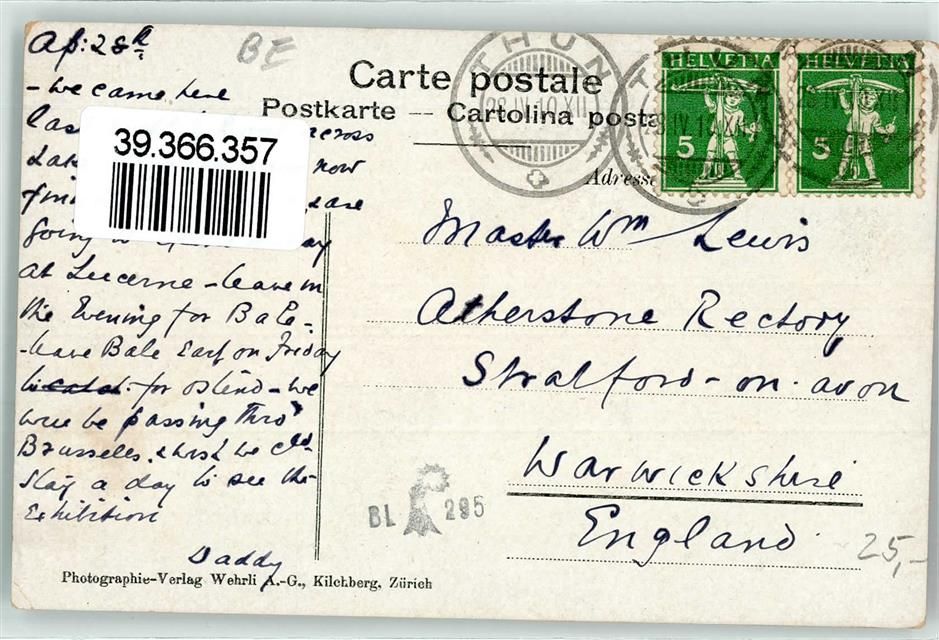 Ap: 28th
BE
- we came here
39.366.357
across
now
are
at Lucerne - leave in
the Evening for Bale -
- leave Bale Early on Friday
- for ostend - we
will be passing thro'
Brusselles. wish we cld
stay a day to see the
Exhibition
Daddy
Photographie-Verlag Wehrli A.-G., Kilchberg, Zürich
Carte postale
Postkarte — Cartolina posta
Adresse
THUN
28.IV.10.XII
HELVETIA
5
HELVETIA
5
Master Wm Lewis
Atherstone Rectory
Stratford-on-avon
Warwickshire
England
BL 295
25,-